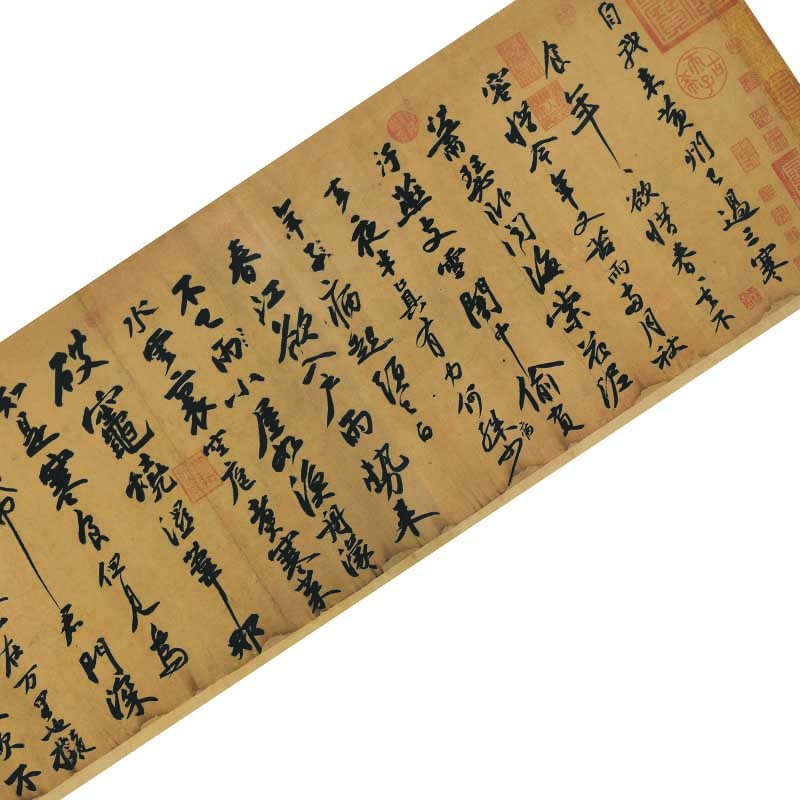 自我來黃州已過三寒
食年〻欲惜春〻去不
容惜今年又苦雨兩月秋
蕭瑟臥聞海棠花泥
汙燕支雪闇中偷負
去夜半真有力何殊少
年子病起須已白
春江欲入戶雨勢來
不已雨小屋如漁舟濛〻
水雲裏空庖煮寒菜
破竈燒濕葦那
知是寒食但見烏
帋君門深
在万里也擬
吹不